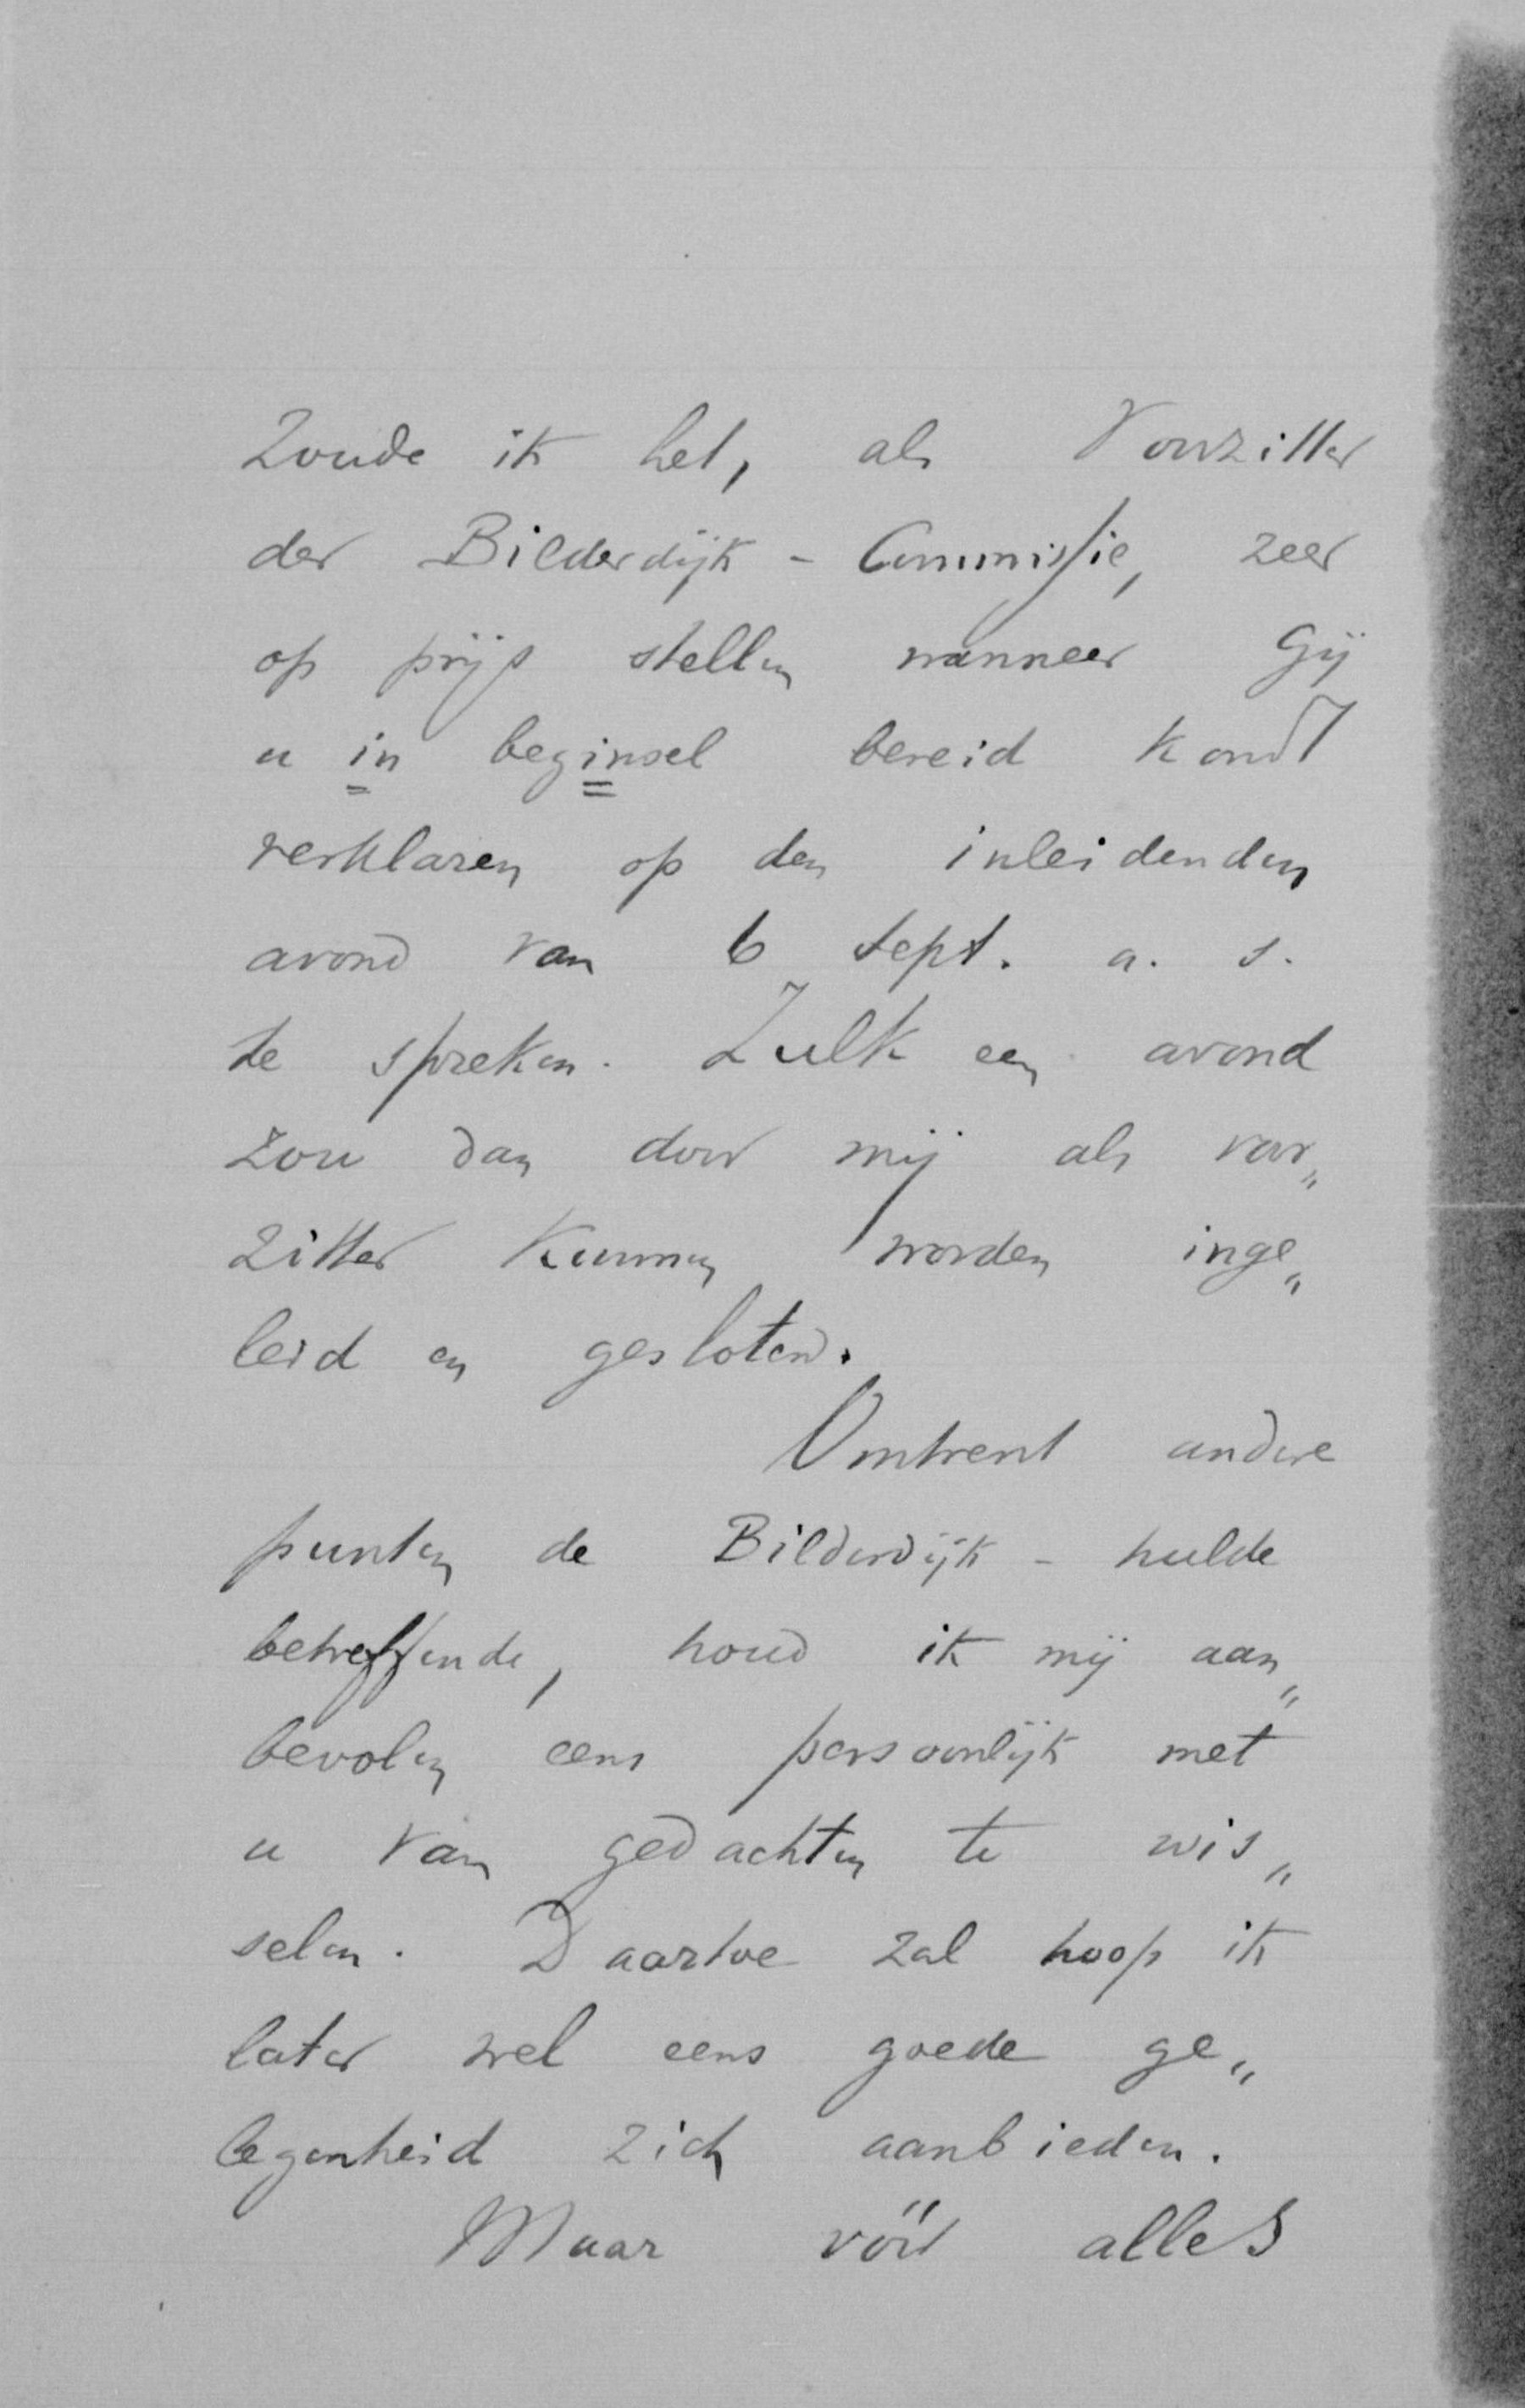 Zoude ik het, als Voorzitter
der Bilderdijk - Commissie, zeer
op prijs stellen wanneer Gij
u in beginsel bereid kondt
verklaren op den inleidenden
avond van 6 Sept. a. s.
te spreken. Zulk een avond
zou dan door mij als voor„
zitter kunnen worden inge„
leid en gesloten.
Omtrent andere
punten de Bilderdijk - hulde
betreffende, houd ik mij aan„
bevolen eens persoonlijk met
u van gedachten te wis„
selen. Daartoe zal hoop ik
later wel eens goede ge„
legenheid zich aanbieden.
Maar vóór alles